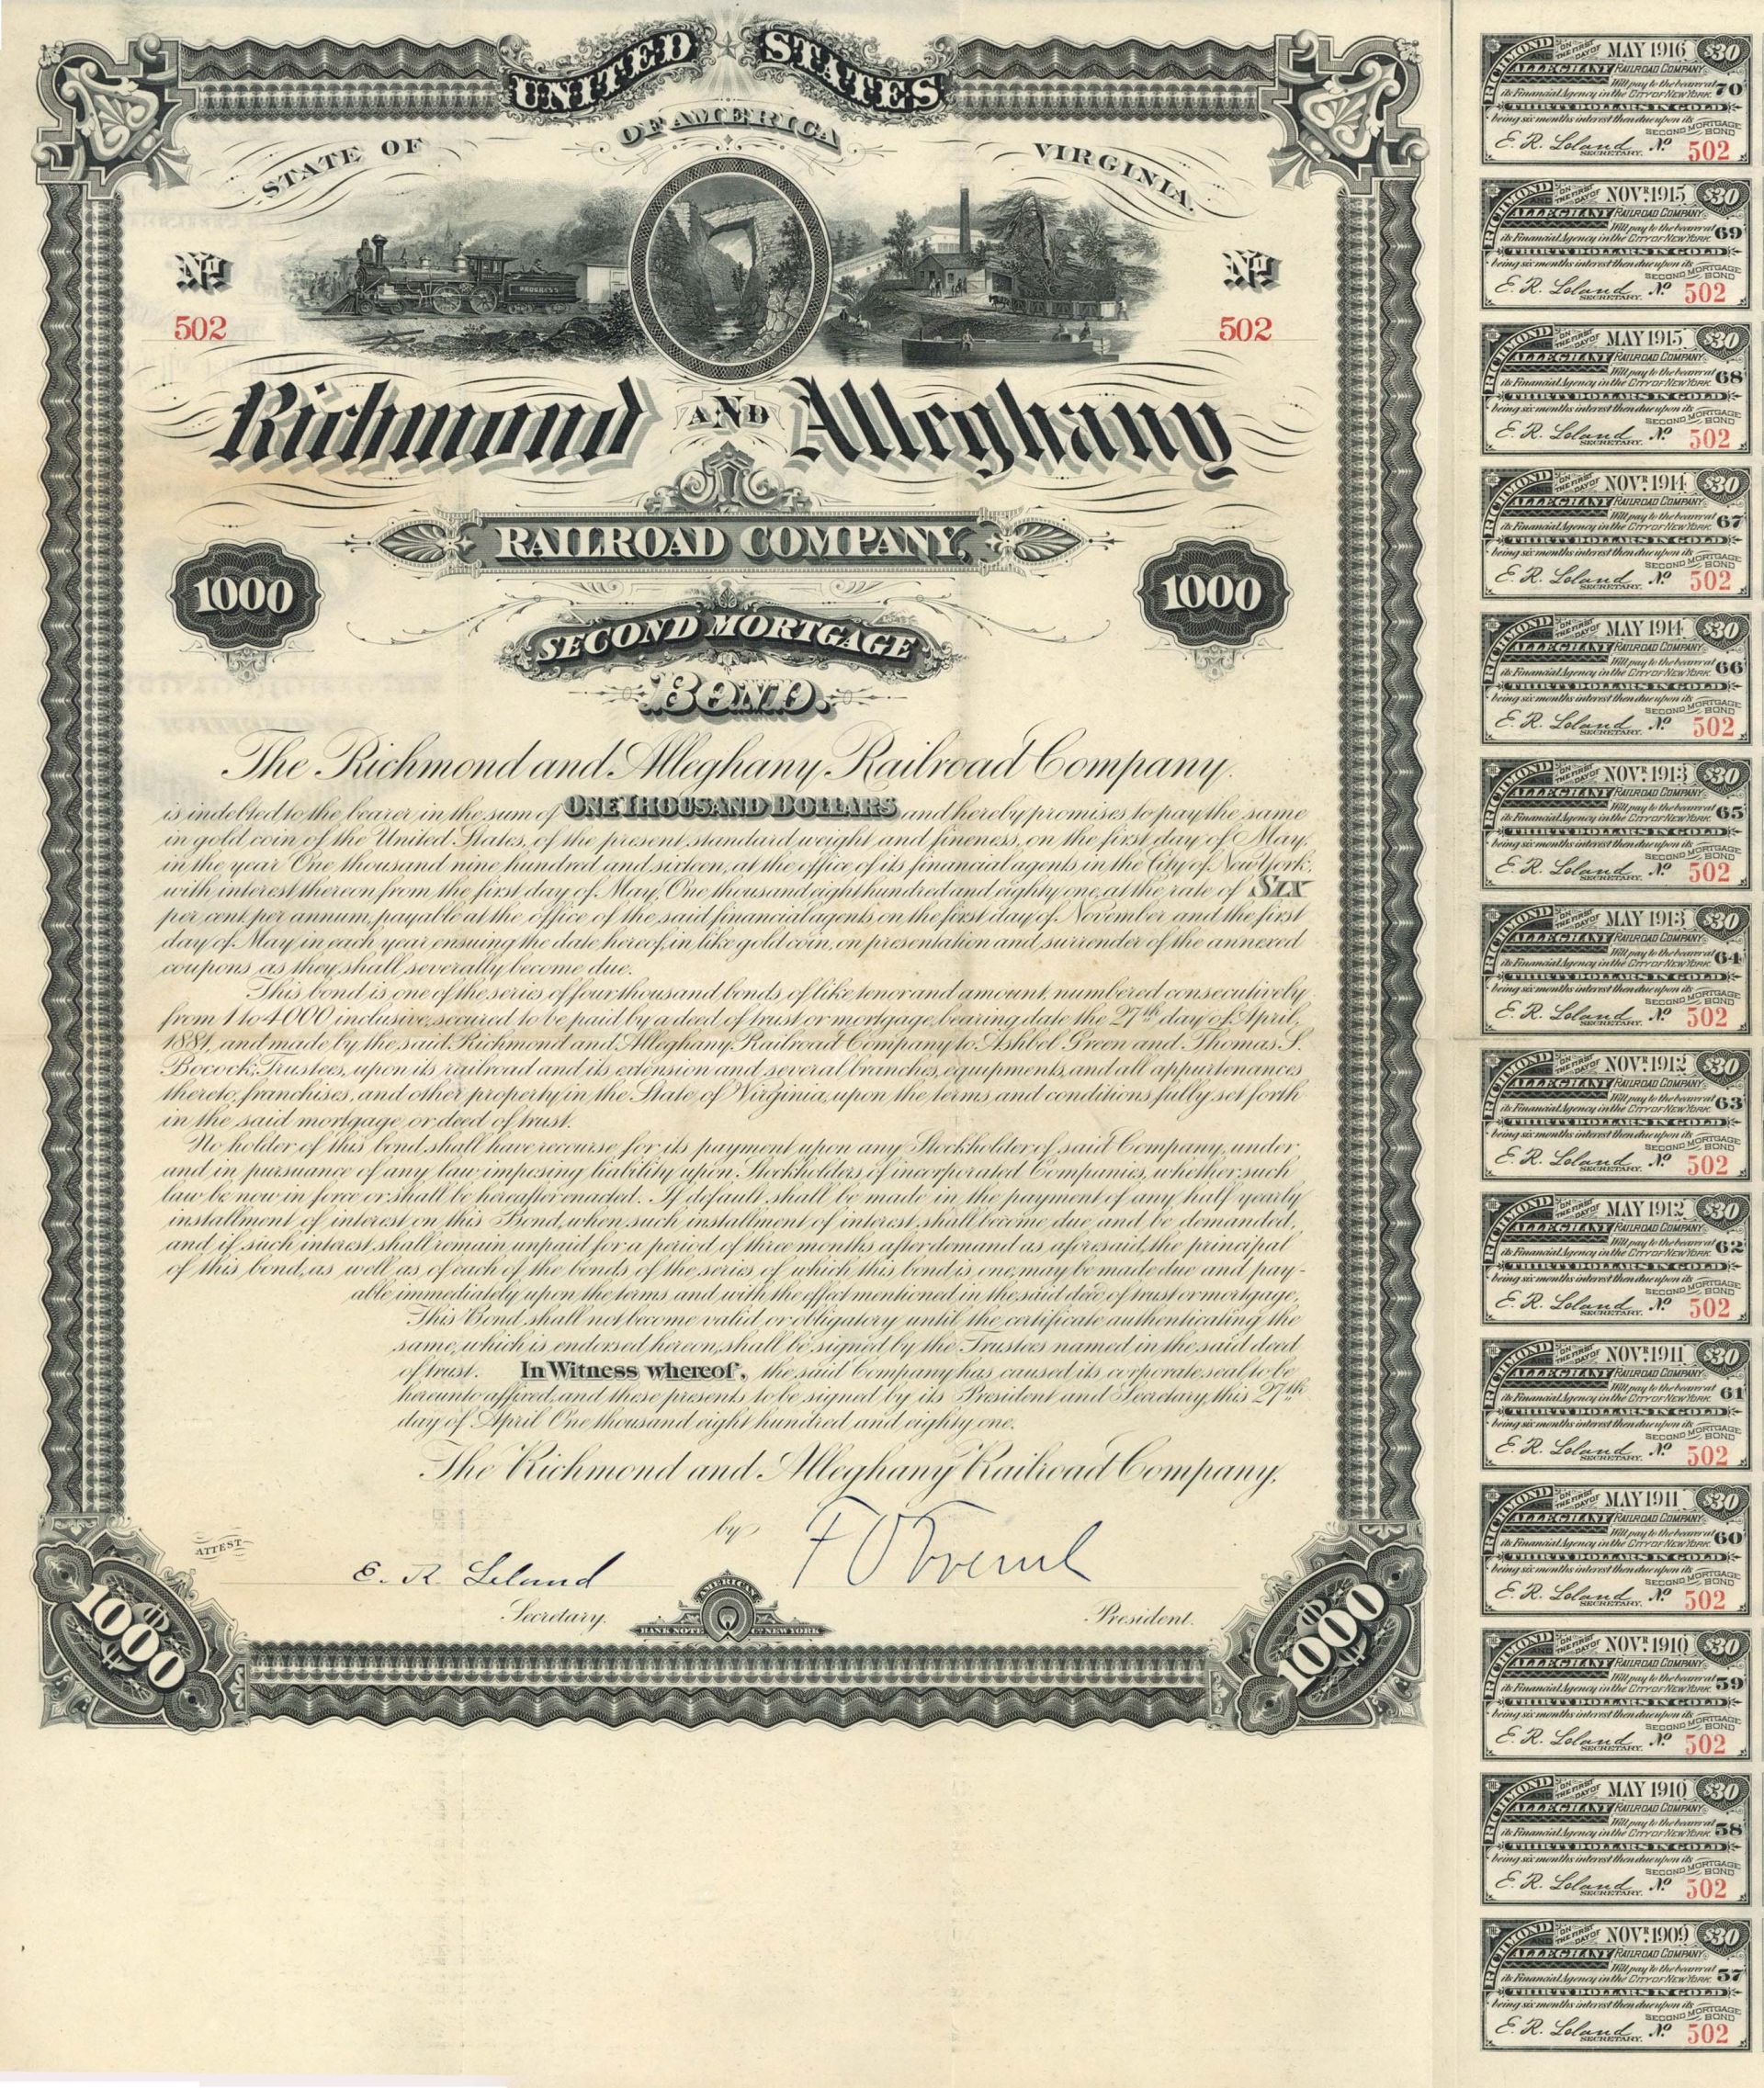 UNITED STATES
OF AMERICA
STATE OF VIRGINIA.
PROGRESS
No No
502 502
Richmond AND Alleghany
RAILROAD COMPANY,
1000 1000
SECOND MORTGAGE
BOND.
The Richmond and Alleghany Railroad Company
is indebted to the bearer in the sum of ONE THOUSAND DOLLARS and hereby promises to pay the same
in gold coin of the United States, of the present standard weight and fineness, on the first day of May,
in the year One thousand nine hundred and sixteen, at the office of its financial agents in the City of New York,
with interest thereon from the first day of May, One thousand eight hundred and eighty one, at the rate of SIX
per cent per annum, payable at the office of the said financial agents on the first day of November and the first
day of May in each year ensuing the date hereof, in like gold coin, on presentation and surrender of the annexed
coupons as they shall severally become due.
This bond is one of the series of four thousand bonds, of like tenor and amount, numbered consecutively
from 1 to 4000 inclusive, secured to be paid by a deed of trust or mortgage, bearing date the 27th day of April,
1881, and made by the said Richmond and Alleghany Railroad Company to Ashbel Green and Thomas S.
Bocock, Trustees, upon its railroad and its extension and several branches, equipments, and all appurtenances
thereto, franchises, and other property in the State of Virginia, upon the terms and conditions fully set forth
in the said mortgage, or deed of trust.
No holder of this bond shall have recourse for its payment upon any Stockholder of said Company, under
and in pursuance of any law imposing liability upon Stockholders of incorporated Companies, whether such
law be now in force or shall be hereafter enacted. If default shall be made in the payment of any half yearly
installment of interest on this Bond, when such installment of interest shall become due and be demanded,
and if such interest shall remain unpaid for a period of three months after demand as aforesaid, the principal
of this bond, as well as of each of the bonds of the series of which this bond is one, may be made due and pay-
able immediately upon the terms and with the effect mentioned in the said deed of trust or mortgage.
This Bond shall not become valid or obligatory until the certificate authenticating the
same, which is endorsed hereon, shall be signed by the Trustees named in the said deed
of trust. In Witness whereof, the said Company has caused its corporate seal to be
hereunto affixed, and these presents to be signed by its President and Secretary, this 27th
day of April One thousand eight hundred and eighty one.
The Richmond and Alleghany Railroad Company,
by
ATTEST
E. R. Leland
Secretary. President.
AMERICAN
BANK NOTE CO. NEW YORK
1000 1000
THE RICHMOND AND ON THE FIRST DAY OF MAY 1916 $30
ALLEGHANY RAILROAD COMPANY
Will pay to the bearer at 70
its Financial Agency in the CITY OF NEW YORK
THIRTY DOLLARS IN GOLD
being six months interest then due upon its
SECOND MORTGAGE BOND
E. R. Leland SECRETARY. No 502
THE RICHMOND AND ON THE FIRST DAY OF NOVR. 1915 $30
ALLEGHANY RAILROAD COMPANY
Will pay to the bearer at 69
its Financial Agency in the CITY OF NEW YORK
THIRTY DOLLARS IN GOLD
being six months interest then due upon its
SECOND MORTGAGE BOND
E. R. Leland SECRETARY. No 502
THE RICHMOND AND ON THE FIRST DAY OF MAY 1915 $30
ALLEGHANY RAILROAD COMPANY
Will pay to the bearer at 68
its Financial Agency in the CITY OF NEW YORK
THIRTY DOLLARS IN GOLD
being six months interest then due upon its
SECOND MORTGAGE BOND
E. R. Leland SECRETARY. No 502
THE RICHMOND AND ON THE FIRST DAY OF NOVR. 1914 $30
ALLEGHANY RAILROAD COMPANY
Will pay to the bearer at 67
its Financial Agency in the CITY OF NEW YORK
THIRTY DOLLARS IN GOLD
being six months interest then due upon its
SECOND MORTGAGE BOND
E. R. Leland SECRETARY. No 502
THE RICHMOND AND ON THE FIRST DAY OF MAY 1914 $30
ALLEGHANY RAILROAD COMPANY
Will pay to the bearer at 66
its Financial Agency in the CITY OF NEW YORK
THIRTY DOLLARS IN GOLD
being six months interest then due upon its
SECOND MORTGAGE BOND
E. R. Leland SECRETARY. No 502
THE RICHMOND AND ON THE FIRST DAY OF NOVR. 1913 $30
ALLEGHANY RAILROAD COMPANY
Will pay to the bearer at 65
its Financial Agency in the CITY OF NEW YORK
THIRTY DOLLARS IN GOLD
being six months interest then due upon its
SECOND MORTGAGE BOND
E. R. Leland SECRETARY. No 502
THE RICHMOND AND ON THE FIRST DAY OF MAY 1913 $30
ALLEGHANY RAILROAD COMPANY
Will pay to the bearer at 64
its Financial Agency in the CITY OF NEW YORK
THIRTY DOLLARS IN GOLD
being six months interest then due upon its
SECOND MORTGAGE BOND
E. R. Leland SECRETARY. No 502
THE RICHMOND AND ON THE FIRST DAY OF NOVR. 1912 $30
ALLEGHANY RAILROAD COMPANY
Will pay to the bearer at 63
its Financial Agency in the CITY OF NEW YORK
THIRTY DOLLARS IN GOLD
being six months interest then due upon its
SECOND MORTGAGE BOND
E. R. Leland SECRETARY. No 502
THE RICHMOND AND ON THE FIRST DAY OF MAY 1912 $30
ALLEGHANY RAILROAD COMPANY
Will pay to the bearer at 62
its Financial Agency in the CITY OF NEW YORK
THIRTY DOLLARS IN GOLD
being six months interest then due upon its
SECOND MORTGAGE BOND
E. R. Leland SECRETARY. No 502
THE RICHMOND AND ON THE FIRST DAY OF NOVR. 1911 $30
ALLEGHANY RAILROAD COMPANY
Will pay to the bearer at 61
its Financial Agency in the CITY OF NEW YORK
THIRTY DOLLARS IN GOLD
being six months interest then due upon its
SECOND MORTGAGE BOND
E. R. Leland SECRETARY. No 502
THE RICHMOND AND ON THE FIRST DAY OF MAY 1911 $30
ALLEGHANY RAILROAD COMPANY
Will pay to the bearer at 60
its Financial Agency in the CITY OF NEW YORK
THIRTY DOLLARS IN GOLD
being six months interest then due upon its
SECOND MORTGAGE BOND
E. R. Leland SECRETARY. No 502
THE RICHMOND AND ON THE FIRST DAY OF NOVR. 1910 $30
ALLEGHANY RAILROAD COMPANY
Will pay to the bearer at 59
its Financial Agency in the CITY OF NEW YORK
THIRTY DOLLARS IN GOLD
being six months interest then due upon its
SECOND MORTGAGE BOND
E. R. Leland SECRETARY. No 502
THE RICHMOND AND ON THE FIRST DAY OF MAY 1910 $30
ALLEGHANY RAILROAD COMPANY
Will pay to the bearer at 58
its Financial Agency in the CITY OF NEW YORK
THIRTY DOLLARS IN GOLD
being six months interest then due upon its
SECOND MORTGAGE BOND
E. R. Leland SECRETARY. No 502
THE RICHMOND AND ON THE FIRST DAY OF NOVR. 1909 $30
ALLEGHANY RAILROAD COMPANY
Will pay to the bearer at 57
its Financial Agency in the CITY OF NEW YORK
THIRTY DOLLARS IN GOLD
being six months interest then due upon its
SECOND MORTGAGE BOND
E. R. Leland SECRETARY. No 502